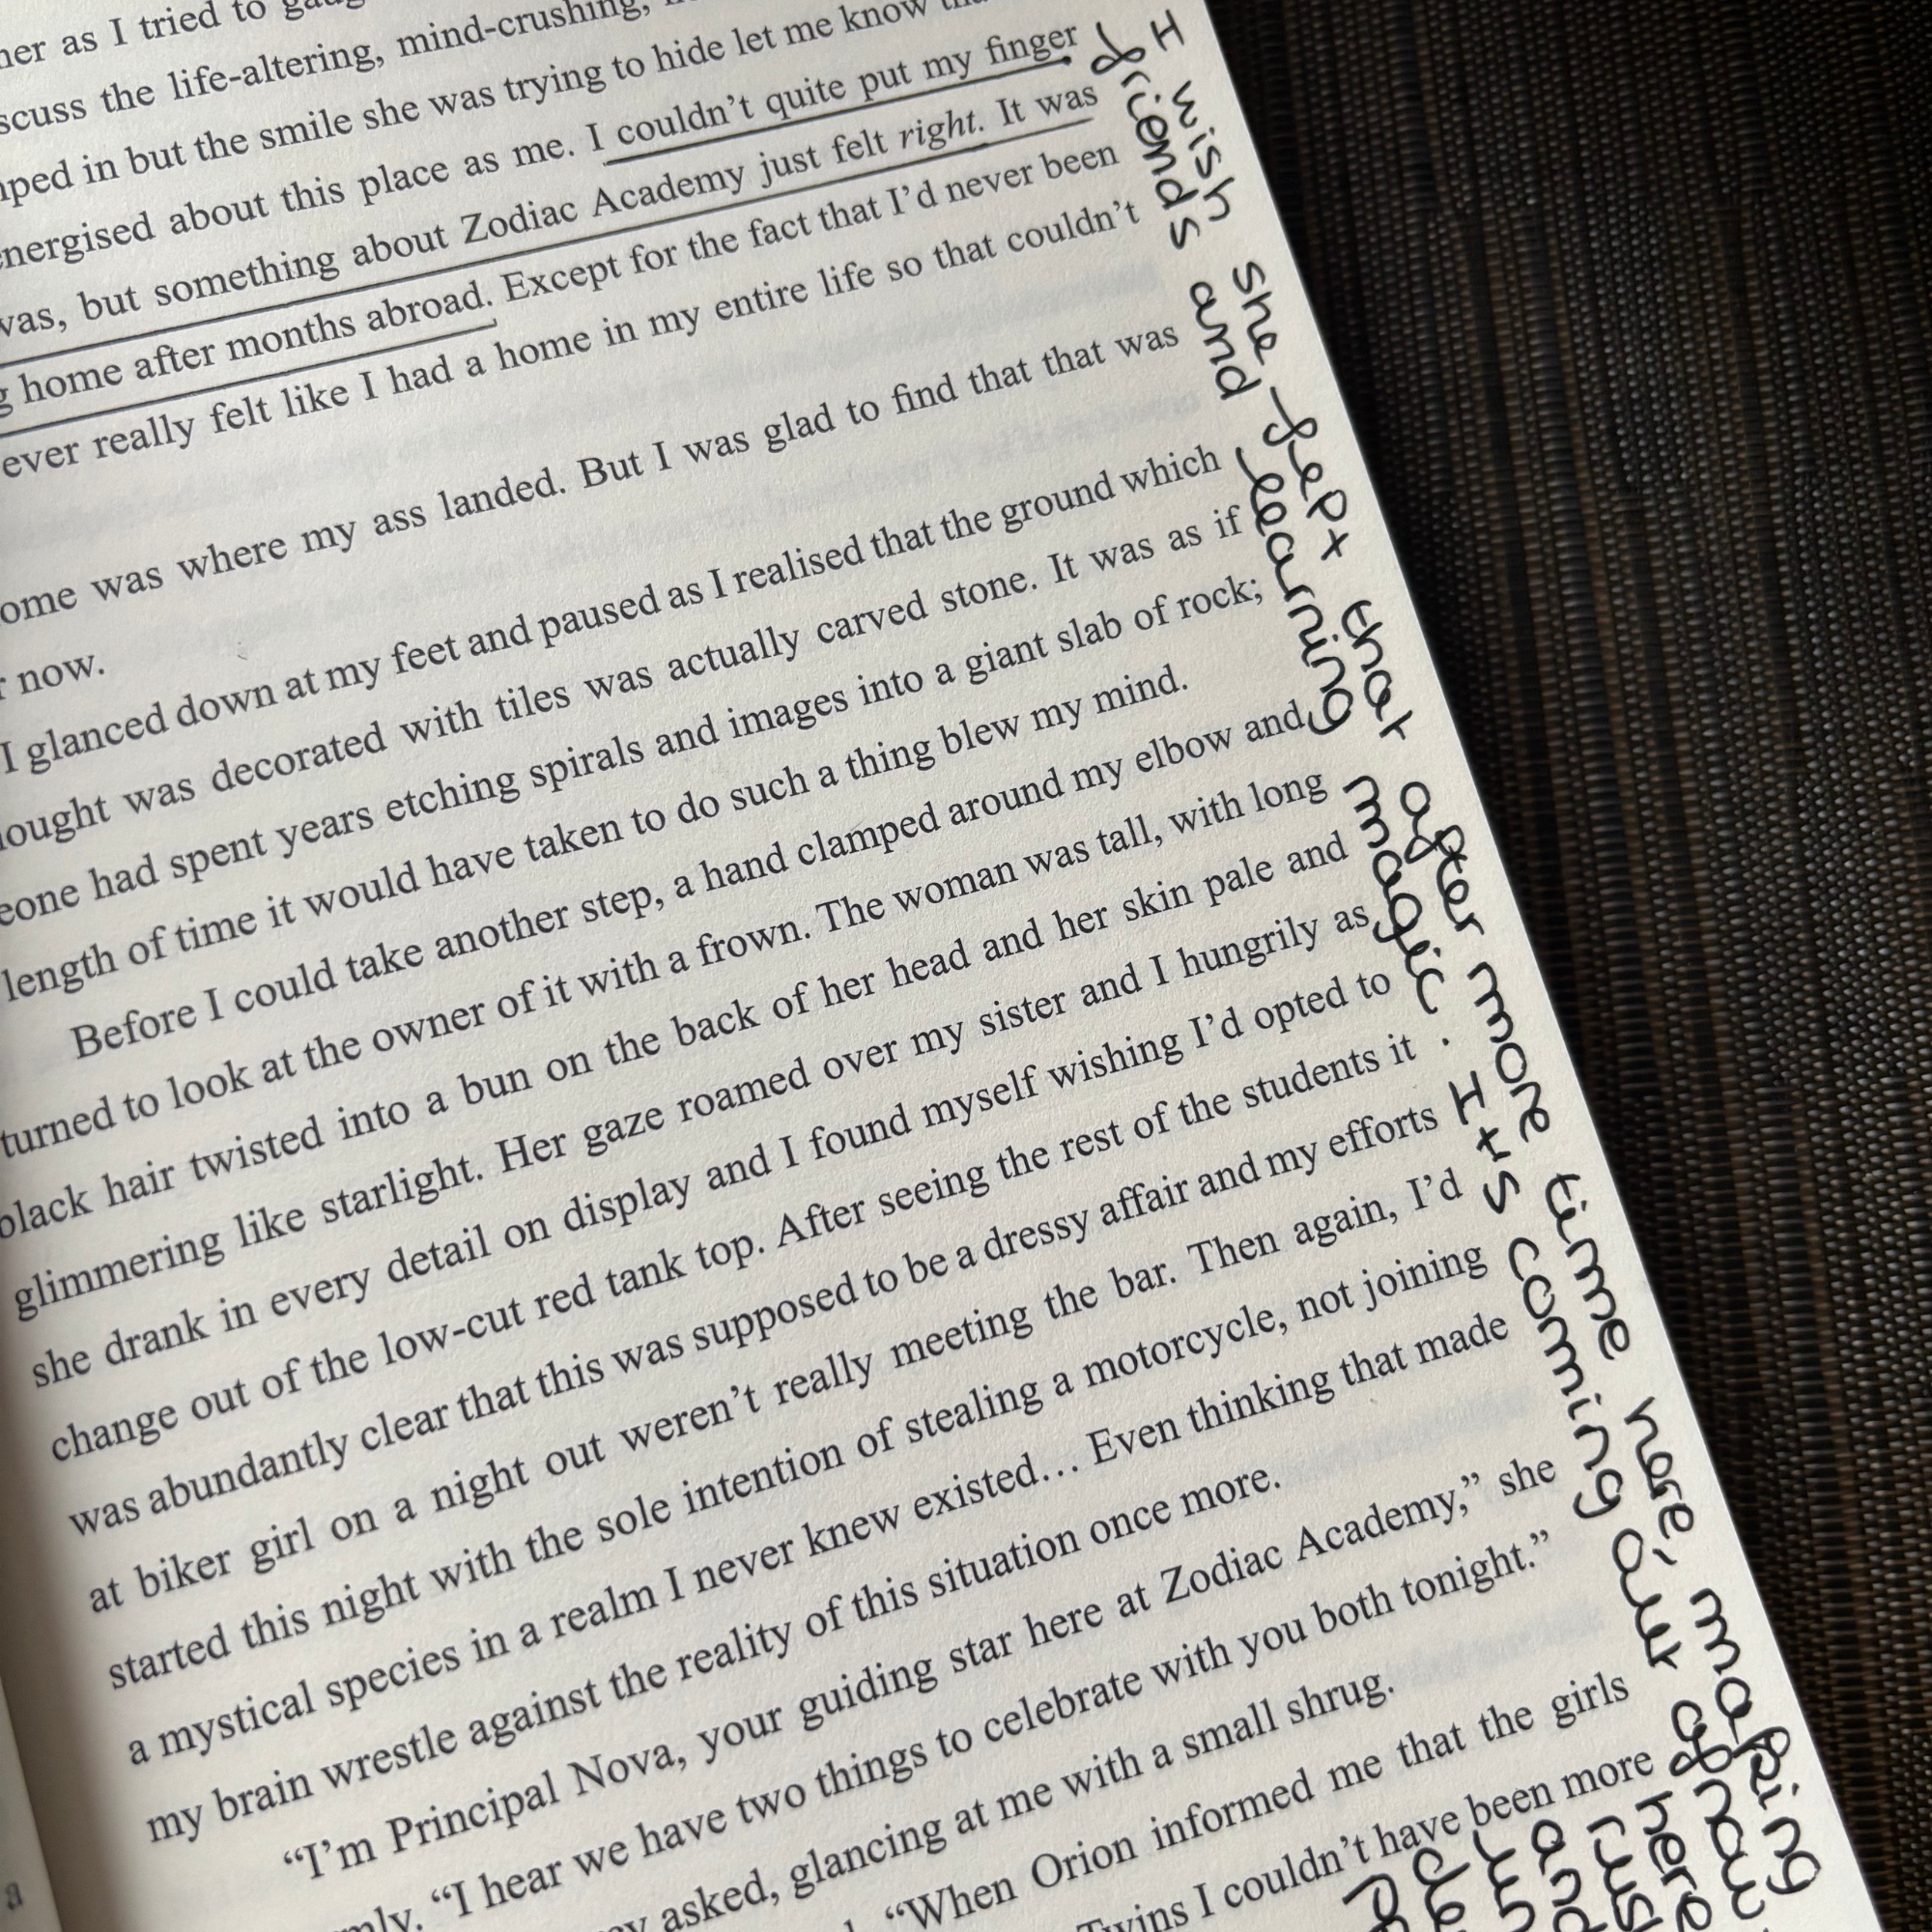 her as I tried to
scuss the life-altering, mind-crushing,
ped in but the smile she was trying to hide let me know
energised about this place as me. I couldn't quite put my finger
was, but something about Zodiac Academy just felt right. It was
home after months abroad. Except for the fact that I'd never been
ever really felt like I had a home in my entire life so that couldn't
ome was where my ass landed. But I was glad to find that that was
r now.
I glanced down at my feet and paused as I realised that the ground which
ought was decorated with tiles was actually carved stone. It was as if
eone had spent years etching spirals and images into a giant slab of rock;
length of time it would have taken to do such a thing blew my mind.
Before I could take another step, a hand clamped around my elbow and
turned to look at the owner of it with a frown. The woman was tall, with long
black hair twisted into a bun on the back of her head and her skin pale and
glimmering like starlight. Her gaze roamed over my sister and I hungrily as
she drank in every detail on display and I found myself wishing I'd opted to
change out of the low-cut red tank top. After seeing the rest of the students it
was abundantly clear that this was supposed to be a dressy affair and my efforts
at biker girl on a night out weren't really meeting the bar. Then again, I'd
started this night with the sole intention of stealing a motorcycle, not joining
a mystical species in a realm I never knew existed... Even thinking that made
my brain wrestle against the reality of this situation once more.
"I'm Principal Nova, your guiding star here at Zodiac Academy," she
mly. "I hear we have two things to celebrate with you both tonight."
asked, glancing at me with a small shrug.
"When Orion informed me that the girls
Twins I couldn't have been more
I wish she felt that after more time here, making
friends and learning magic. Its coming out of nowh
here
and
a